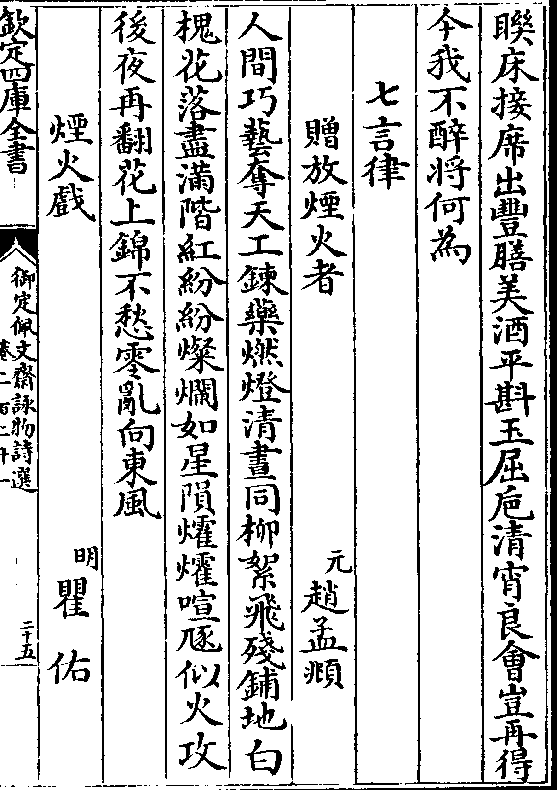 聮床接席出豐膳美酒平斟玉屈巵清宵良會豈再得
今我不醉将何為
七言律
贈放煙火者
元趙孟頫
人間巧藝奪天工鍊藥燃燈清晝同柳絮飛殘鋪地白
槐花落盡滿階紅紛紛燦爛如星隕㸌㸌喧豗似火攻
後夜再翻花上錦不愁零亂向東風
煙火戲
明瞿佑
欽定四庫全書
御定佩文齋詠物詩選
卷二百二十一
二十五